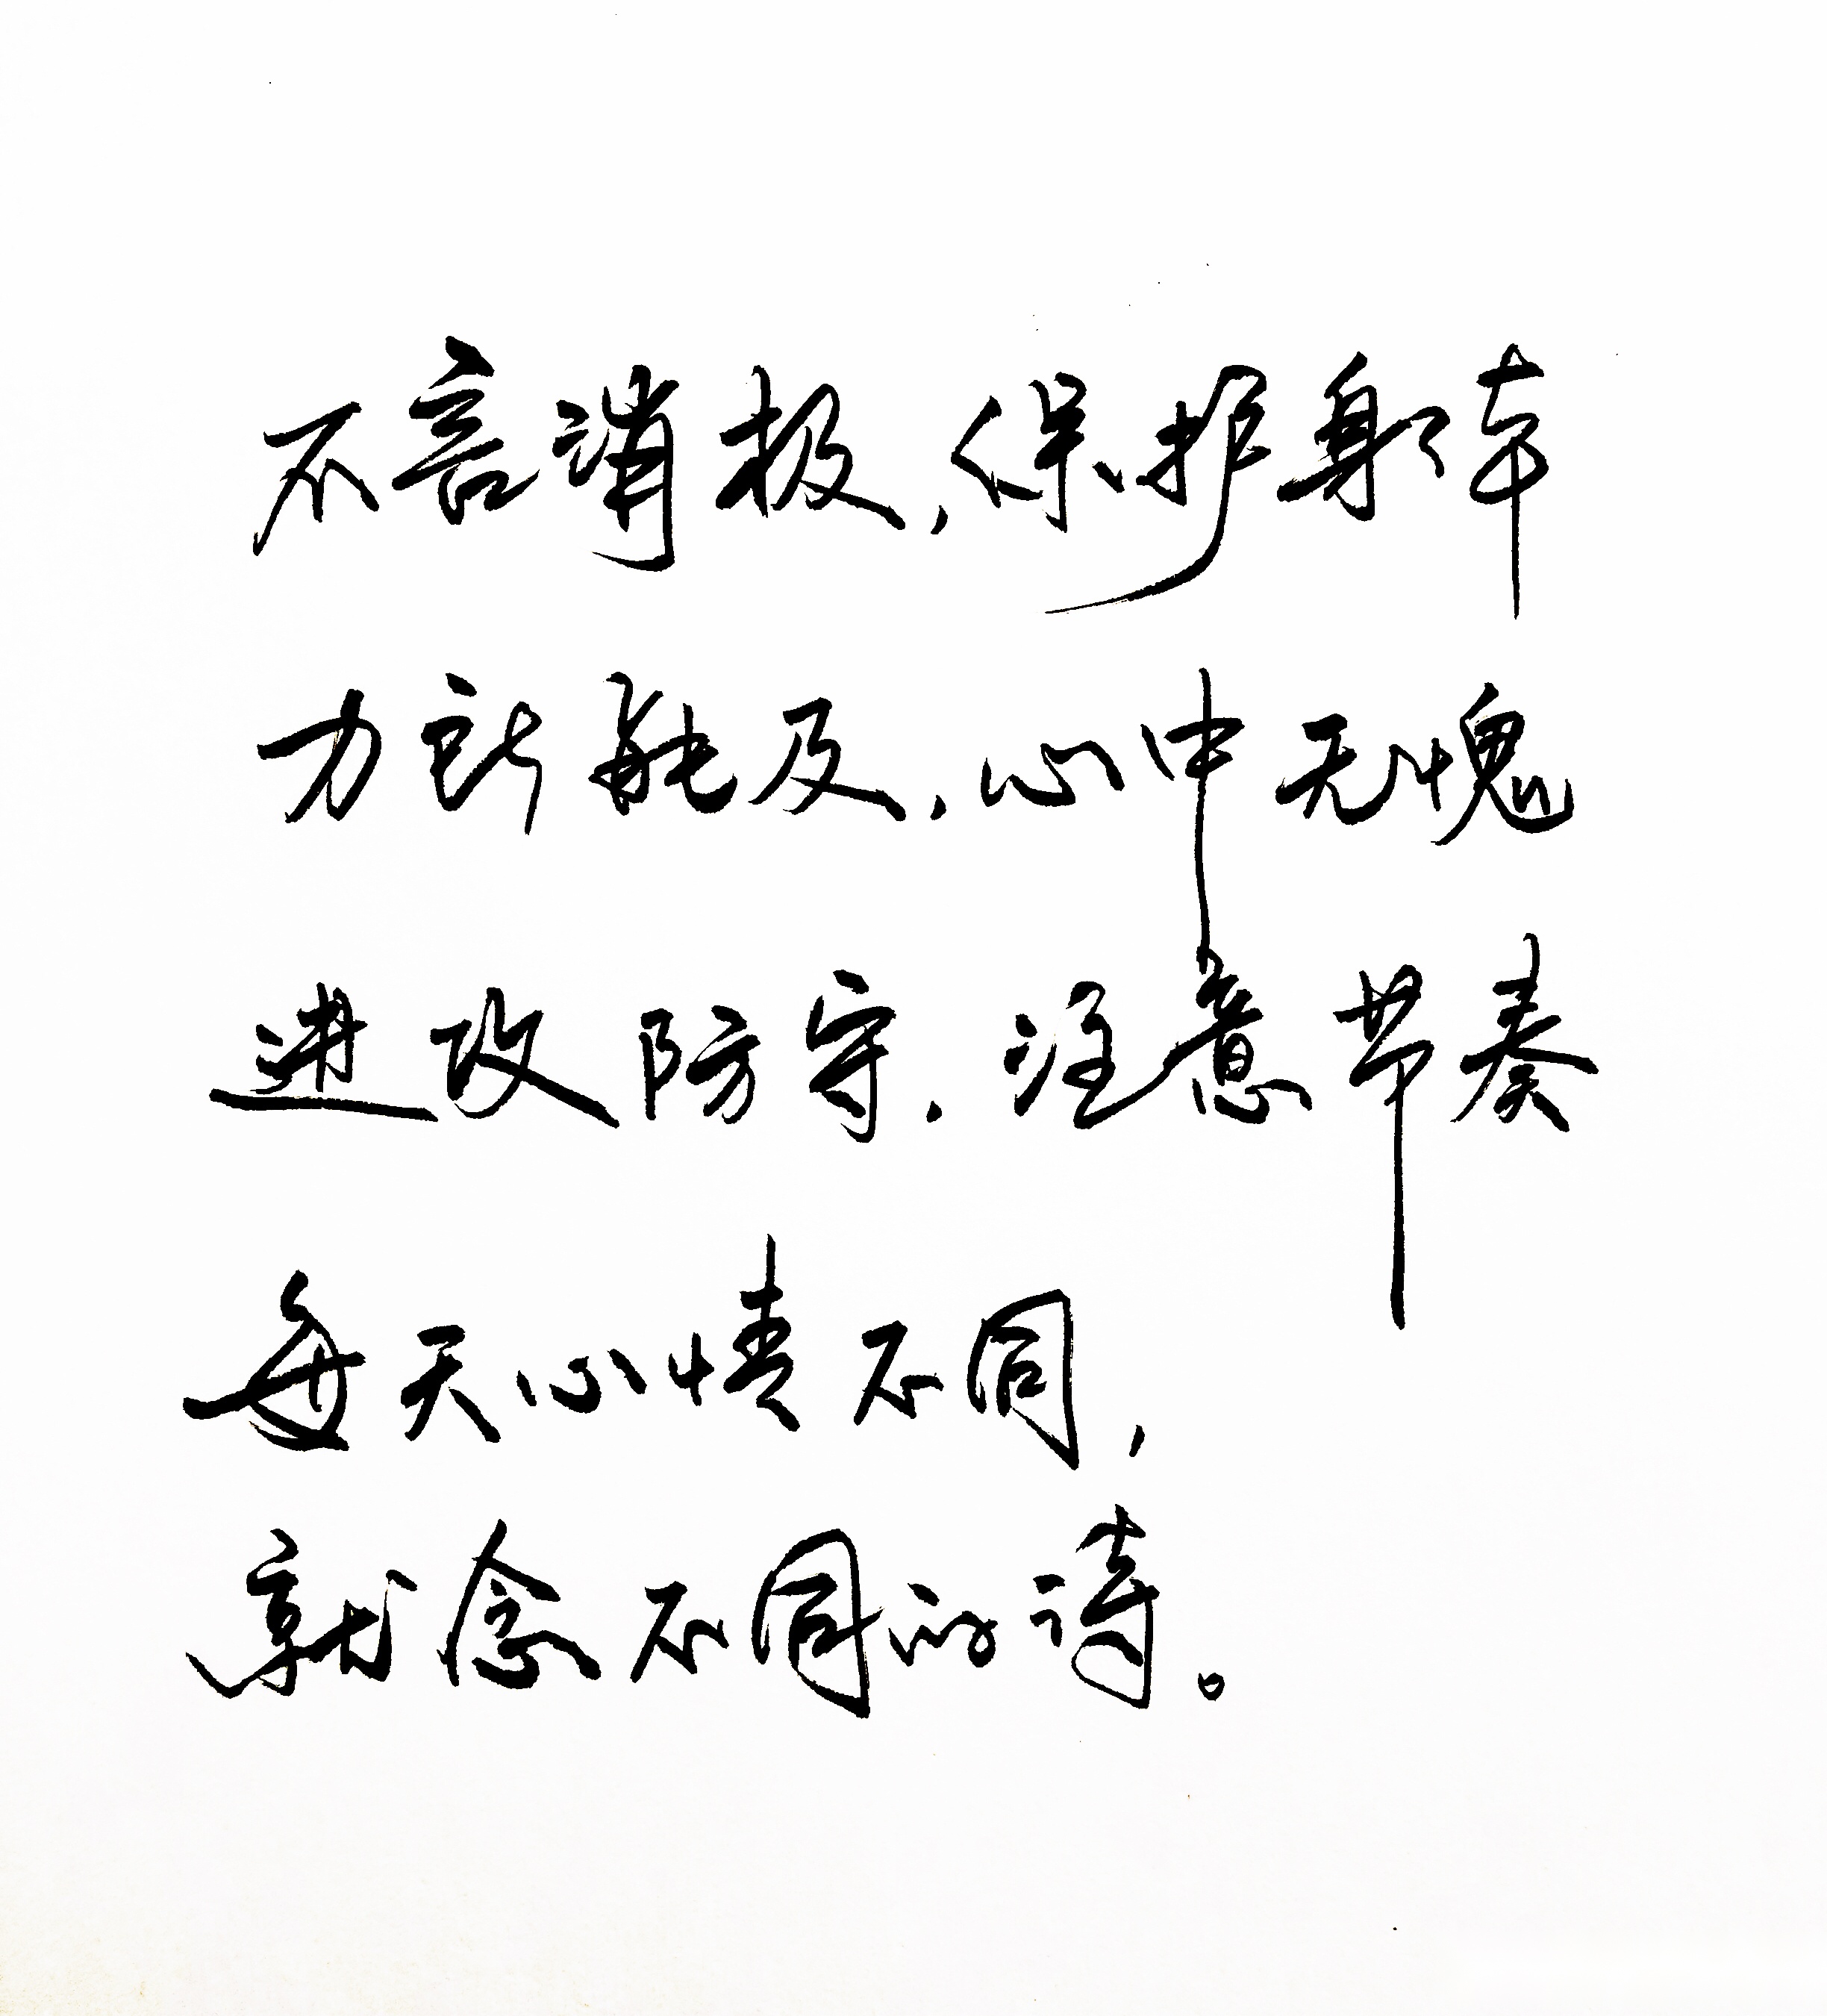 不言消极，保护身体
力所能及，心中无愧
进攻防守，注意节奏
每天心情不同，
就念不同的诗。